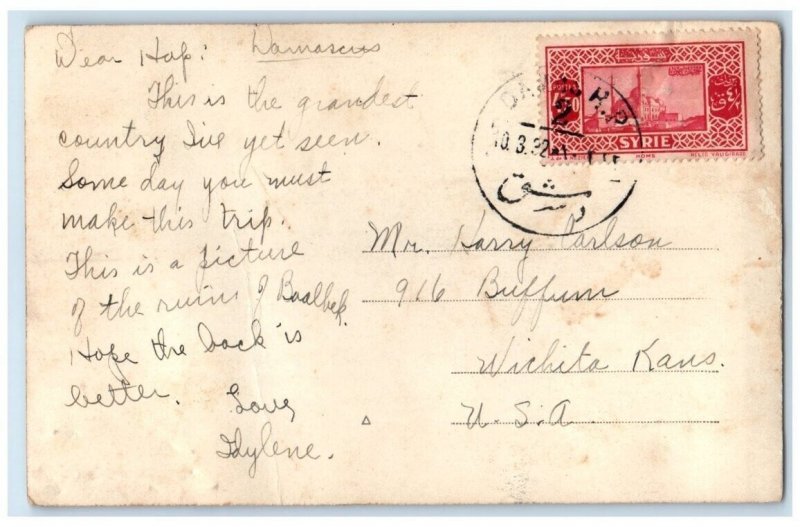 Dear Hap: Damascus
This is the grandest
country I've yet seen.
Some day you must
make this trip.
This is a picture
of the ruins of Baalbek.
Hope the back is
better.
Love,
Idylene.
Mr. Harry Carlson
916 Buffum
Wichita Kans.
U.S.A.
POSTES
SYRIE
HOMS
HELIO VAUGIRARD
DA R.P
10.3.32
دمشق